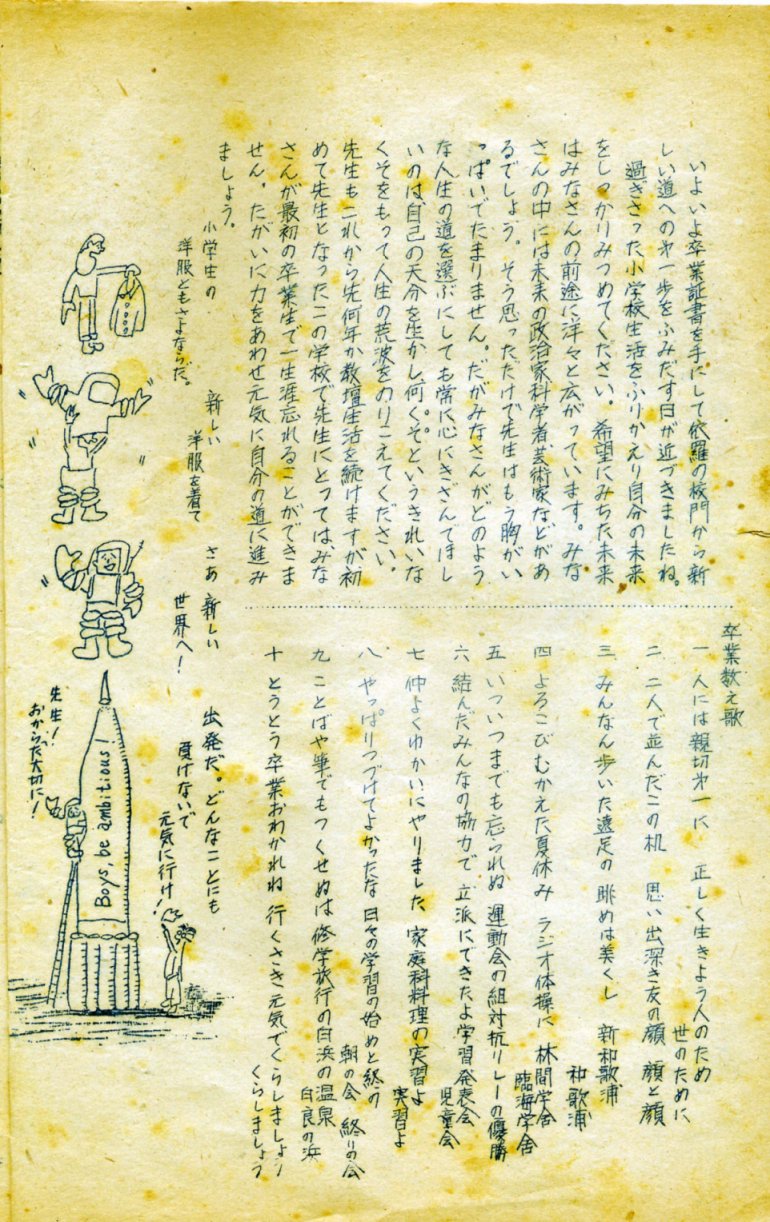 いよいよ卒業証書を手にして依羅の校門から新
しい道への第一歩をふみだす日が近づきましたね。
過ぎさった小学校生活をふりかえり自分の未来
をしっかりみつめてください。希望にみちた未来
はみなさんの前途に洋々と広がっています。みな
さんの中には未来の政治家科学者芸術家などがあ
るでしょう。そう思っただけで先生はもう胸がい
っぱいでたまりません。だがみなさんがどのよう
な人生の道を選ぶにしても常に心にきざんでほし
いのは自己の天分を生かし何くそというきれいな
くそをもって人生の荒波をのりこえてください。
先生もこれから先何年か教壇生活を続けますが初
めて先生となったこの学校で先生にとってはみな
さんが最初の卒業生で一生涯忘れることができま
せん。たがいに力をあわせ元気に自分の道に進み
ましょう。
小学生の
洋服ともさよならだ。
新しい
洋服を着て
さあ新しい
世界へ!
出発だ。どんなことにも
負けないで
元気に行け!
先生!
おからだ大切に!
Boys, be ambitious!
卒業数え歌
一 人には親切第一に 正しく生きよう人のため
世のために
二 二人で並んだこの机 思い出深き友の顔 顔と顔
三 みんなん歩いた遠足の 眺めは美くし 新和歌浦
和歌浦
四 よろこびむかえた夏休み ラジオ体操に 林間学舎
臨海学舎
五 いついつまでも忘られぬ 運動会の組対抗リレーの優勝
六 結んだみんなの協力で 立派にできたよ学習発表会
児童会
七 仲よくゆかいにやりました 家庭科料理の実習よ
実習よ
八 やっぱりつづけてよかったな 日々の学習の始めと終の
朝の会 終りの会
九 ことばや筆でもつくせぬは 修学旅行の白浜の温泉
白良の浜
十 とうとう卒業おわかれね 行くさき元気でくらしましょう
くらしましょう